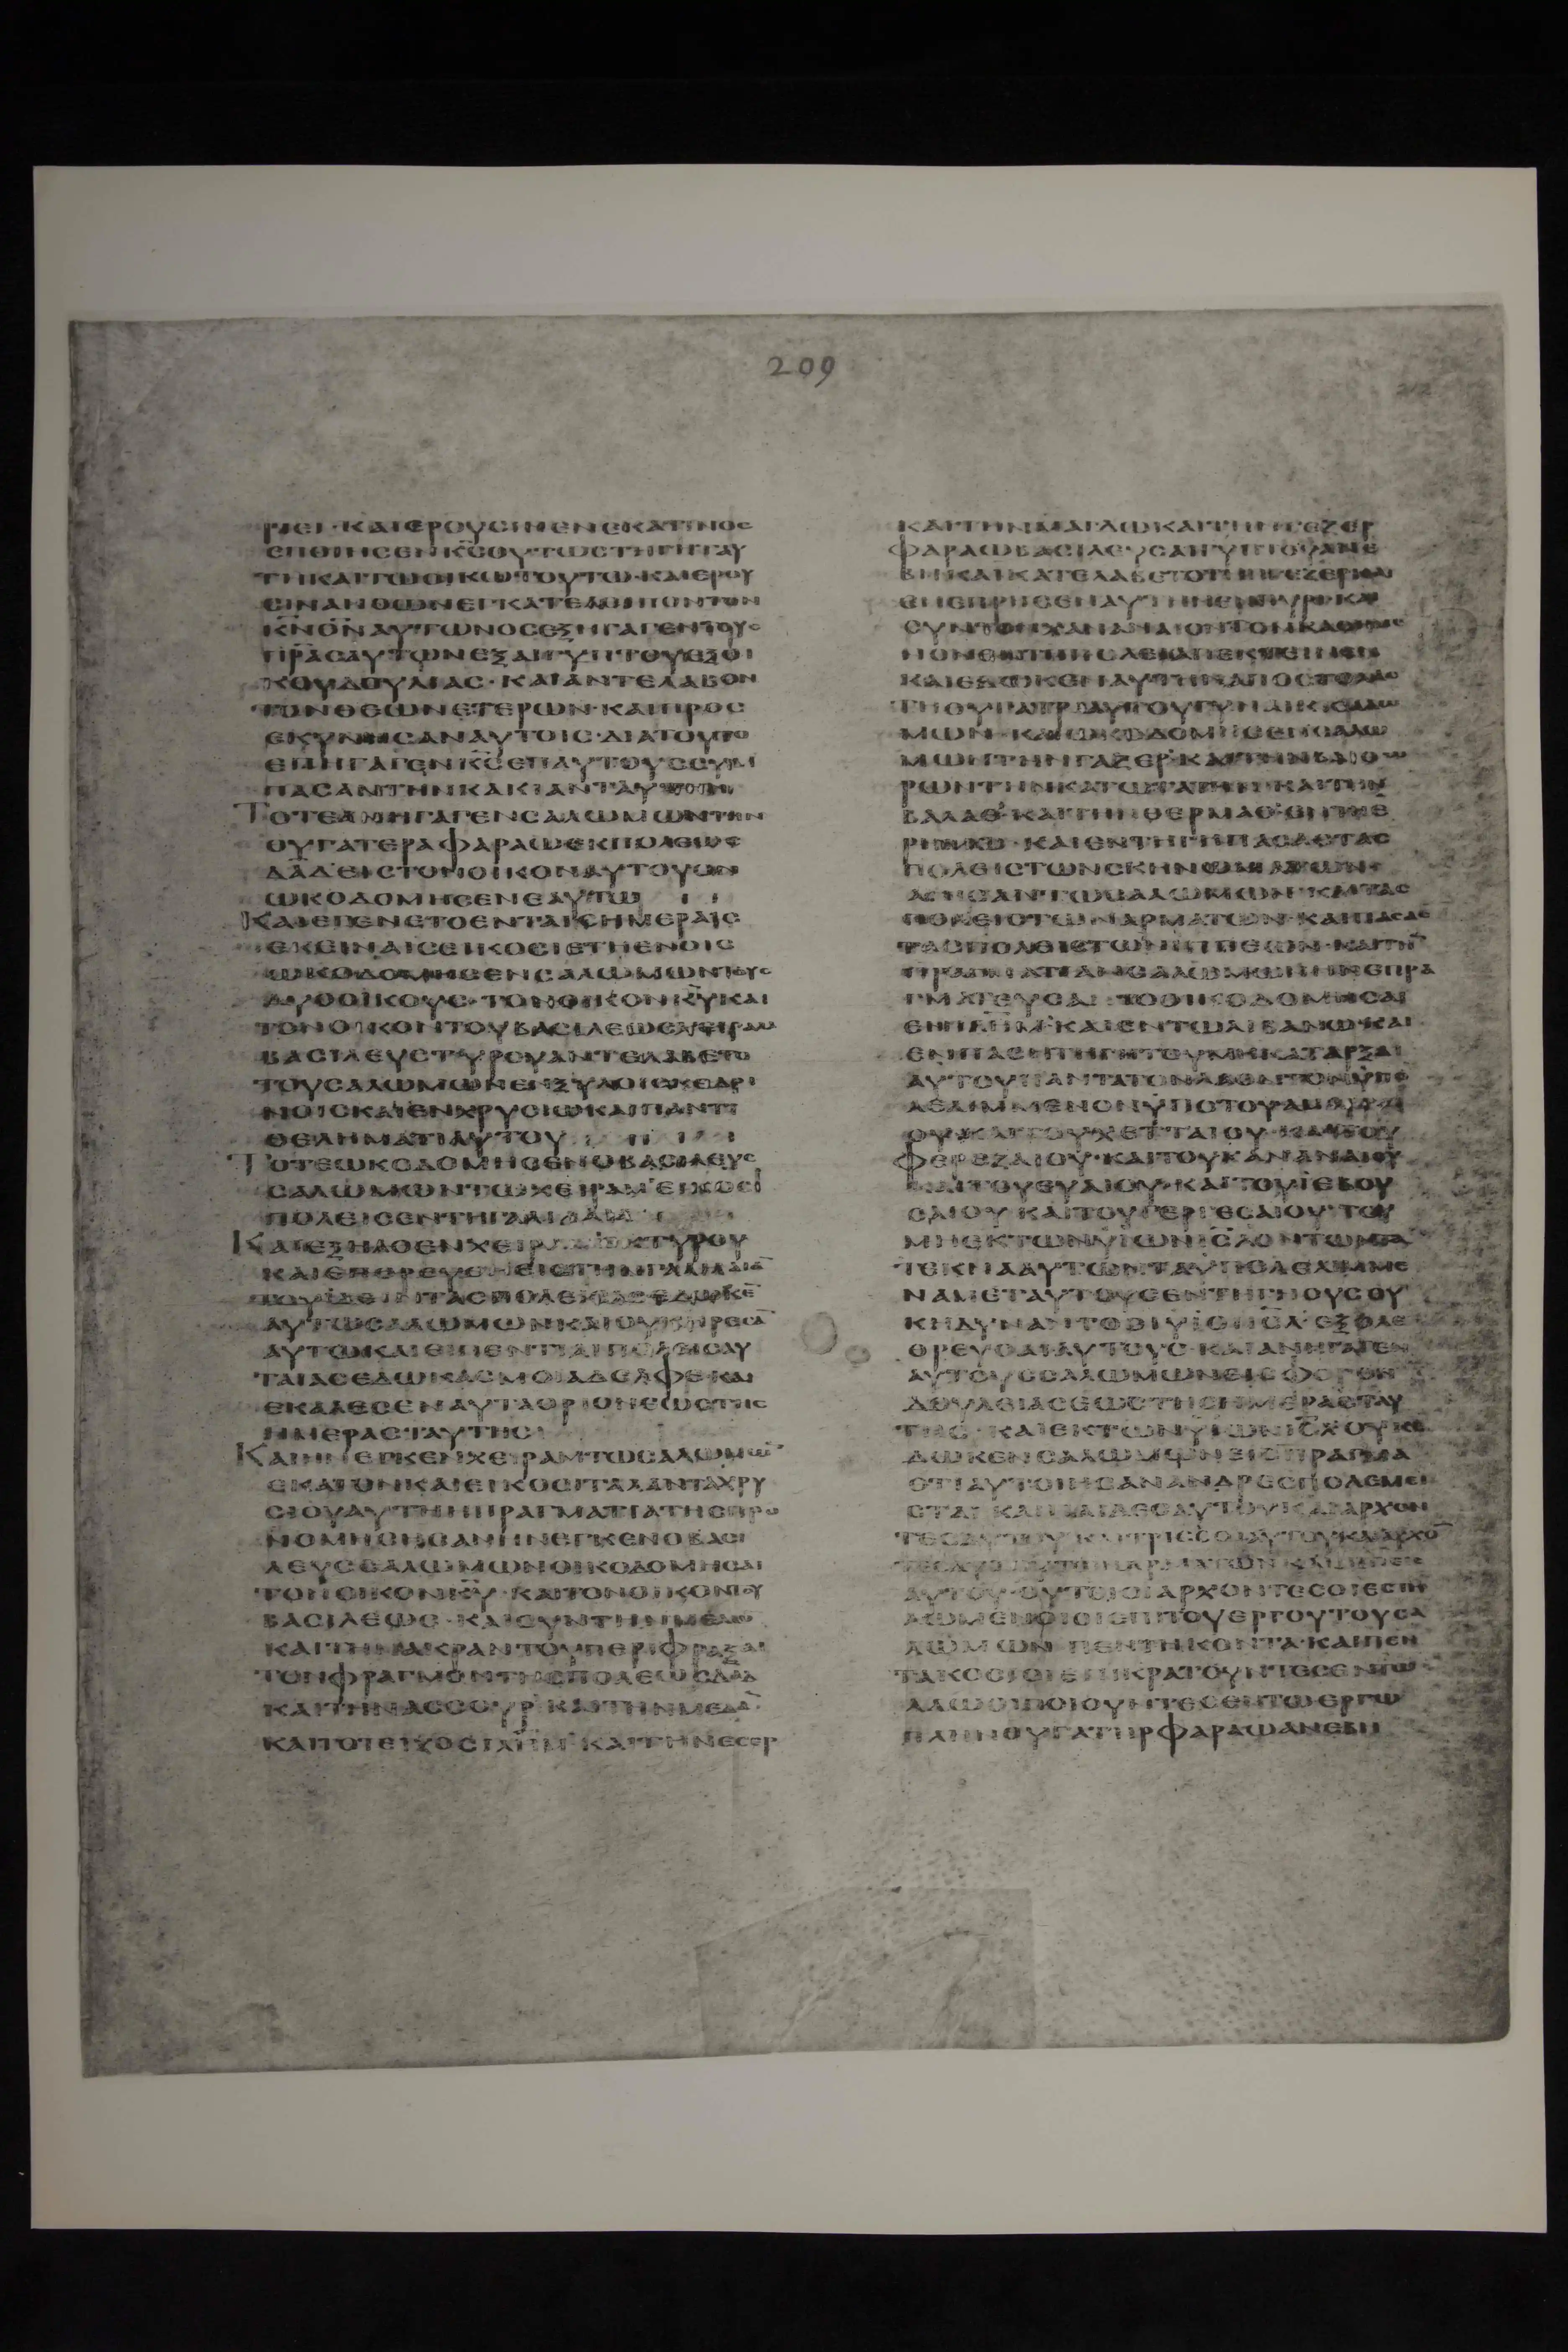 209
212
ΡΙΕΙ·ΚΑΙΕΡΟΥCΙΝΕΝΕΚΑΤΙΝΟC
ΕΠΟΙΗCΕΝΚ̅C̅ΟΥΤΩCΤΗΓΗΤΑΥ
ΤΗΚΑΙΤΩΟΙΚΩΤΟΥΤΩ·ΚΑΙΕΡΟΥ
CΙΝΑΝΘΩΝΕΓΚΑΤΕΛΙΠΟΝΤΟΝ
Κ̅Ν̅Θ̅Ν̅ΑΥΤΩΝΟCΕΞΗΓΑΓΕΝΤΟΥC
Π̅Ρ̅Α̅CΑΥΤΩΝΕΞΑΙΓΥΠΤΟΥΕΞΟΙ
ΚΟΥΔΟΥΛΙΑC·ΚΑΙΑΝΤΕΛΑΒΟΝ
ΤΟΝΘΕΩΝΕΤΕΡΩΝ·ΚΑΙΠΡΟC
ΕΚΥΝΗCΑΝΑΥΤΟΙC·ΔΙΑΤΟΥΤΟ
ΕΠΗΓΑΓΕΝΚ̅C̅ΕΠΑΥΤΟΥC
ΠΑCΑΝΤΗΝΚΑΚΙΑΝΤΑΥΤΗΝ
ΤΟΤΕΑΝΗΓΑΓΕΝCΑΛΩΜΩΝΤΗΝ
ΘΥΓΑΤΕΡΑΦΑΡΑΩΕΚΠΟΛΕΩC
Δ̅Α̅Δ̅ΕΙCΤΟΝΟΙΚΟΝΑΥΤΟΥΟΝ
ΩΚΟΔΟΜΗCΕΝΕΑΥΤΩ
ΚΑΙΕΓΕΝΕΤΟΕΝΤΑΙCΗΜΕΡΑΙC
ΕΚΕΙΝΑΙCΕΙΚΟCΙΕΤΗΕΝΟΙC
ΩΚΟΔΟΜΗCΕΝCΑΛΩΜΩΝΤΟΥC
ΔΥΟΟΙΚΟΥC·ΤΟΝΟΙΚΟΝΚ̅Υ̅ΚΑΙ
ΤΟΝΟΙΚΟΝΤΟΥΒΑCΙΛΕΩCΧΕΙΡΑΜ
ΒΑCΙΛΕΥCΤΥΡΟΥΑΝΤΕΛΑΒΕΤΟ
ΤΟΥCΑΛΩΜΩΝΕΝΞΥΛΟΙCΚΕΔΡΙ
ΝΟΙCΚΑΙΕΝΧΡΥCΙΩΚΑΙΠΑΝΤΙ
ΘΕΛΗΜΑΤΙΑΥΤΟΥ
ΤΟΤΕΩΚΟΔΟΜΗCΕΝΟΒΑCΙΛΕΥC
CΑΛΩΜΩΝΤΩΧΕΙΡΑΜΕΙΚΟCΙ
ΠΟΛΕΙCΕΝΤΗΓΑΛΙΛΑΙΑ
ΚΑΙΕΞΗΛΘΕΝΧΕΙΡΑΜΕΚΤΥΡΟΥ
ΚΑΙΕΠΟΡΕΥΘΗΕΙCΤΗΝΓΑΛΙΛΑΙΑ̅
ΤΟΥΙΔΕΙΝΤΑCΠΟΛΕΙCΑCΕΔΩΚΕ̅
ΑΥΤΩCΑΛΩΜΩΝΚΑΙΟΥΚΗΡΕCΑ̅
ΑΥΤΩΚΑΙΕΙΠΕΝΤΙΑΙΠΟΛΕΙCΑΥ
ΤΑΙΑCΕΔΩΚΑCΜΟΙΑΔΕΛΦΕΚΑΙ
ΕΚΑΛΕCΕΝΑΥΤΑΟΡΙΟΝΕΩCΤΗC
ΗΜΕΡΑCΤΑΥΤΗC
ΚΑΙΗΝΕΓΚΕΝΧΕΙΡΑΜΤΩCΑΛΩΜΩ̅
ΕΚΑΤΟΝΚΑΙΕΙΚΟCΙΤΑΛΑΝΤΑΧΡΥ
CΙΟΥΑΥΤΗΗΠΡΑΓΜΑΤΙΑΤΗCΠΡΟ
ΝΟΜΗCΗCΑΝΗΝΕΓΚΕΝΟΒΑCΙ
ΛΕΥCCΑΛΩΜΩΝΟΙΚΟΔΟΜΗCΑΙ
ΤΟΝΟΙΚΟΝΚ̅Υ̅·ΚΑΙΤΟΝΟΙΚΟΝΤΟΥ
ΒΑCΙΛΕΩC·ΚΑΙCΥΝΤΗΝΜΕΛΩ
ΚΑΙΤΗΝΑΚΡΑΝΤΟΥΠΕΡΙΦΡΑΞΑΙ
ΤΟΝΦΡΑΓΜΟΝΤΗCΠΟΛΕΩCΔ̅Α̅Δ̅
ΚΑΙΤΗΝΑCCΟΥΡ·ΚΑΙΤΗΝΜΕΔΑ̅
ΚΑΙΤΟΤΕΙΧΟCΙ̅Λ̅Η̅Μ̅·ΚΑΙΤΗΝΕCΕΡ
ΚΑΙΤΗΝΜΑΓΔΩΚΑΙΤΗΝΓΕΖΕΡ
ΦΑΡΑΩΒΑCΙΛΕΥCΑΙΓΥΠΤΟΥΑΝΕ
ΒΗΚΑΙΚΑΤΕΛΑΒΕΤΟΤΗΝΓΕΖΕΡΚΑΙ
ΕΝΕΠΡΗCΕΝΑΥΤΗΝΕΝΠΥΡΙΚΑΙ
CΥΝΤΟΝΧΑΝΑΝΑΙΟΝΤΟΝΚΑΘΗΜΕ
ΝΟΝΕΝΤΗΠΟΛΕΙΑΠΕΚΤΕΙΝΕΝ
ΚΑΙΕΔΩΚΕΝΑΥΤΗΝΑΠΟCΤΟΛΑC
ΤΗΘΥΓΑΤΡΙΑΥΤΟΥΓΥΝΑΙΚΙCΑΛΩ
ΜΩΝ·ΚΑΙΩΚΟΔΟΜΗCΕΝCΑΛΩ
ΜΩΝΤΗΝΓΑΖΕΡΚΑΙΤΗΝΒΑΙΘΩ
ΡΩΝΤΗΝΚΑΤΩΤΑΤΗΝ·ΚΑΙΤΗΝ
ΒΑΛΑΘ·ΚΑΙΤΗΝΘΕΡΜΑΘ·ΕΝΤΗΕ
ΡΗΜΩ·ΚΑΙΕΝΤΗΓΗΠΑCΑCΤΑC
ΠΟΛΕΙCΤΩΝCΚΗΝΩΜΑΤΩΝ·
ΑΙΗCΑΝΤΩCΑΛΩΜΩΝ·ΚΑΙΤΑC
ΠΟΛΕΙCΤΩΝΑΡΜΑΤΩΝ·ΚΑΙΠΑCΑC
ΤΑCΠΟΛΕΙCΤΩΝΙΠΠΕΩΝ·ΚΑΙΤΗ̅
ΠΡΑΓΜΑΤΙΑΝCΑΛΩΜΩΝΗΝΕΠΡΑ
ΓΜΑΤΕΥCΑΤΟΟΙΚΟΔΟΜΗCΑΙ
ΕΝΙ̅Λ̅Η̅Μ̅·ΚΑΙΕΝΤΩΛΙΒΑΝΩ·ΚΑΙ
ΕΝΠΑCΗΤΗΓΗΤΟΥΜΗΚΑΤΑΡΞΑΙ
ΑΥΤΟΥΠΑΝΤΑΤΟΝΛΑΟΝΤΟΝΥΠΟ
ΛΕΛΙΜΜΕΝΟΝΥΠΟΤΟΥΑΜΟΡΡΑΙ
ΟΥ·ΚΑΙΤΟΥΧΕΤΤΑΙΟΥ·ΚΑΙΤΟΥ
ΦΕΡΕΖΑΙΟΥ·ΚΑΙΤΟΥΚΑΝΑΝΑΙΟΥ
ΚΑΙΤΟΥΕΥΑΙΟΥ·ΚΑΙΤΟΥΙΕΒΟΥ
CΑΙΟΥΚΑΙΤΟΥΓΕΡΓΕCΑΙΟΥ·ΤΟΥ
ΜΗΕΚΤΩΝΥΙΩΝΙ̅C̅Λ̅ΟΝΤΩΝΤΑ
ΤΕΚΝΑΑΥΤΩΝΤΑΥΠΟΛΕΛΙΜΜΕ
ΝΑΜΕΤΑΥΤΟΥCΕΝΤΗΓΗΟΥCΟΥ
ΚΗΔΥΝΑΝΤΟΟΙΥΙΟΙΙ̅C̅Λ̅ΕΞΟΛΕ
ΘΡΕΥCΑΙΑΥΤΟΥC·ΚΑΙΑΝΗΓΑΓΕΝ
ΑΥΤΟΥCCΑΛΩΜΩΝΕΙCΦΟΡΟΝ
ΔΟΥΛΕΙΑCΕΩCΤΗCΗΜΕΡΑCΤΑΥ
ΤΗC·ΚΑΙΕΚΤΩΝΥΙΩΝΙ̅C̅Λ̅ΟΥΚΕ
ΔΩΚΕΝCΑΛΩΜΩΝΕΙCΠΡΑΓΜΑ
ΟΤΙΑΥΤΟΙΗCΑΝΑΝΔΡΕCΠΟΛΕΜΙ
CΤΑΙΚΑΙΠΑΙΔΕCΑΥΤΟΥΚΑΙΑΡΧΟΝ
ΤΕCΑΥΤΟΥΚΑΙΤΡΙCCΟΙΑΥΤΟΥΚΑΙΑΡΧΟ̅
ΤΕCΑΥΤΟΥΤΩΝΑΡΜΑΤΩΝΚΑΙΙΠΠΕΙC
ΑΥΤΟΥ·ΟΥΤΟΙΟΙΑΡΧΟΝΤΕCΟΙΕCΤΗ
ΛΩΜΕΝΟΙΟΙΕΠΙΤΟΥΕΡΓΟΥΤΟΥCΑ
ΛΩΜΩΝΠΕΝΤΗΚΟΝΤΑ·ΚΑΙΠΕΝ
ΤΑΚΟCΙΟΙΕΠΙΚΡΑΤΟΥΝΤΕCΕΝΤΩ
ΛΑΩΟΙΠΟΙΟΥΝΤΕCΕΝΤΩΕΡΓΩ
ΠΛΗΝΘΥΓΑΤΗΡΦΑΡΑΩΑΝΕΒΗ